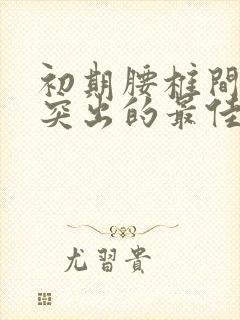 初期腰椎間
突出的最佳
尤習貴